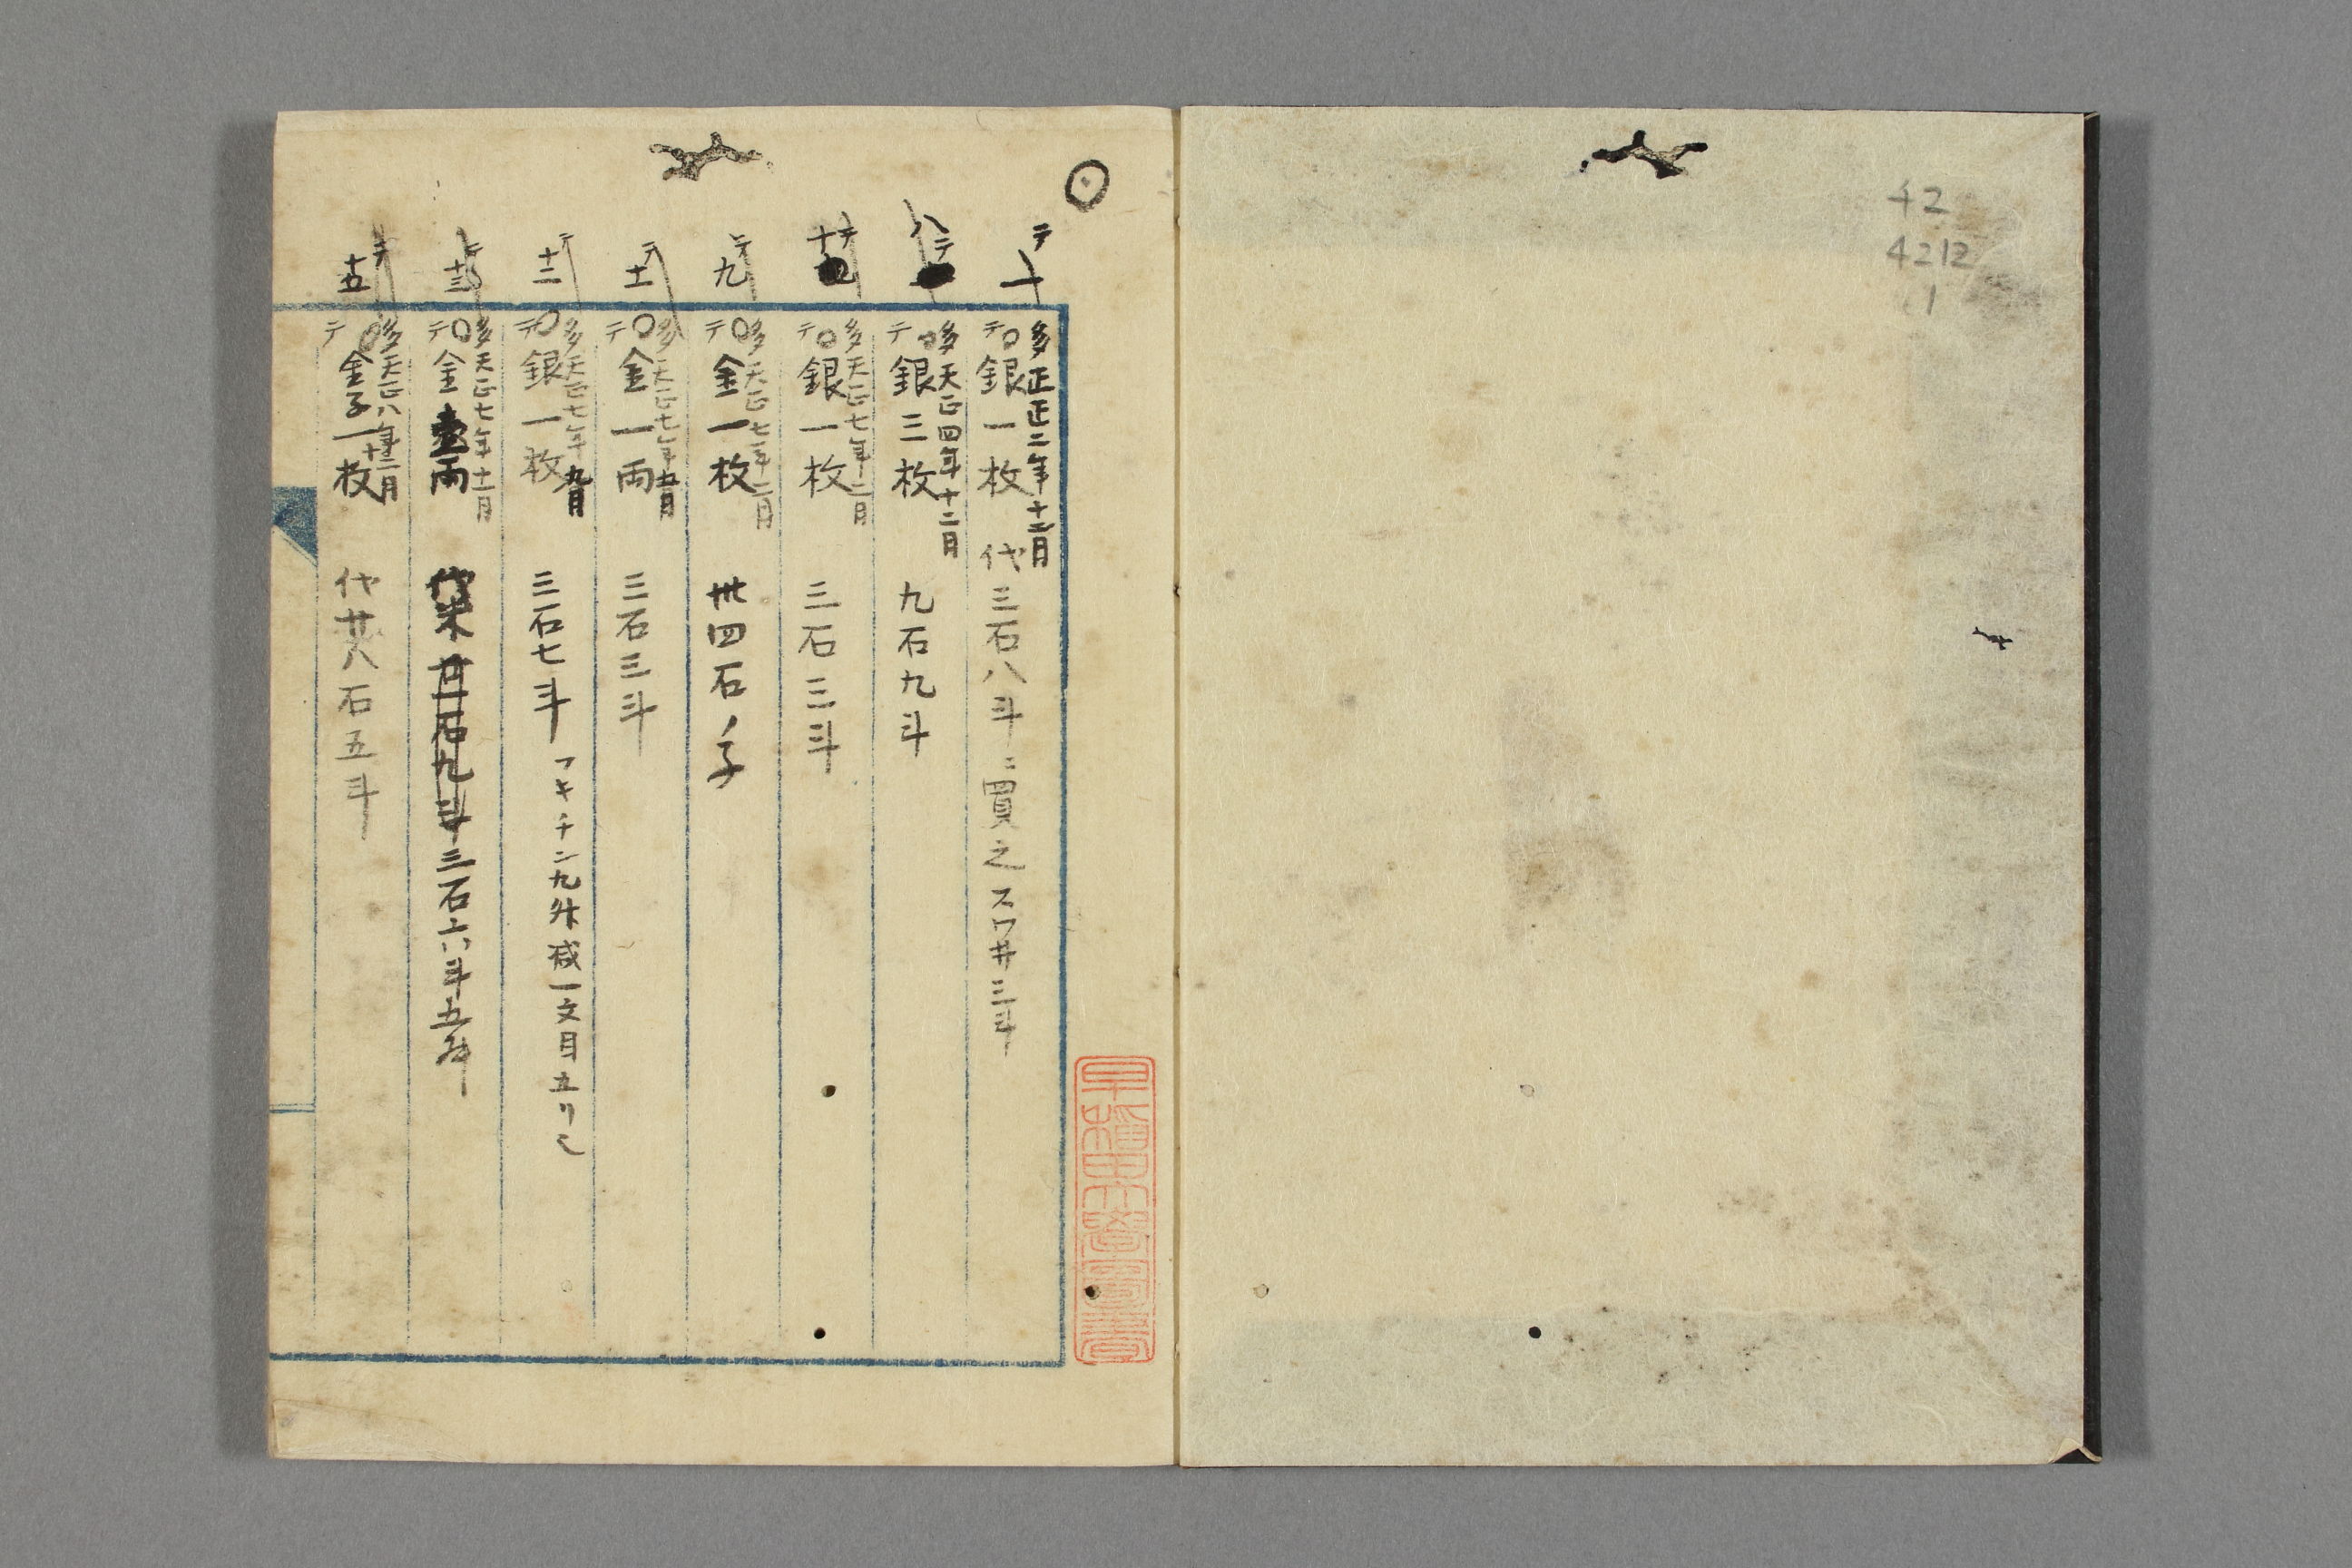 42
4212
1
テ
一
多正正二年十二月
テ〇銀一枚 代三石八斗ニ買之スワ井三斗
八テ
多天正四年十二月
テ〇銀三枚 九石九斗
十テ
多天正七年二月
テ〇銀一枚 三石三斗
テ
九
多天正七年二月
テ〇金一枚 卅四石ノ子
テ
十一
多天正七年五月
テ〇金一両 三石三斗
テ
十二
多天正七年九月
テ〇銀一枚 三石七斗 アキチン九升減一文目五リミ
テ
十三
多天正七年十一月
テ〇金壹両 三石六斗五升
テ
十五
多天正八年十二月
テ〇金子一枚 代廿八石五斗
早稲田大学図書